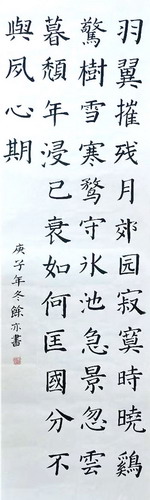 羽翼摧残月郊园寂寞時曉鷄
驚樹雪寒鹜守氷池急景忽雲
暮頹年浸已衰如何匡國分不
與夙心期
庚子年冬餘亦書